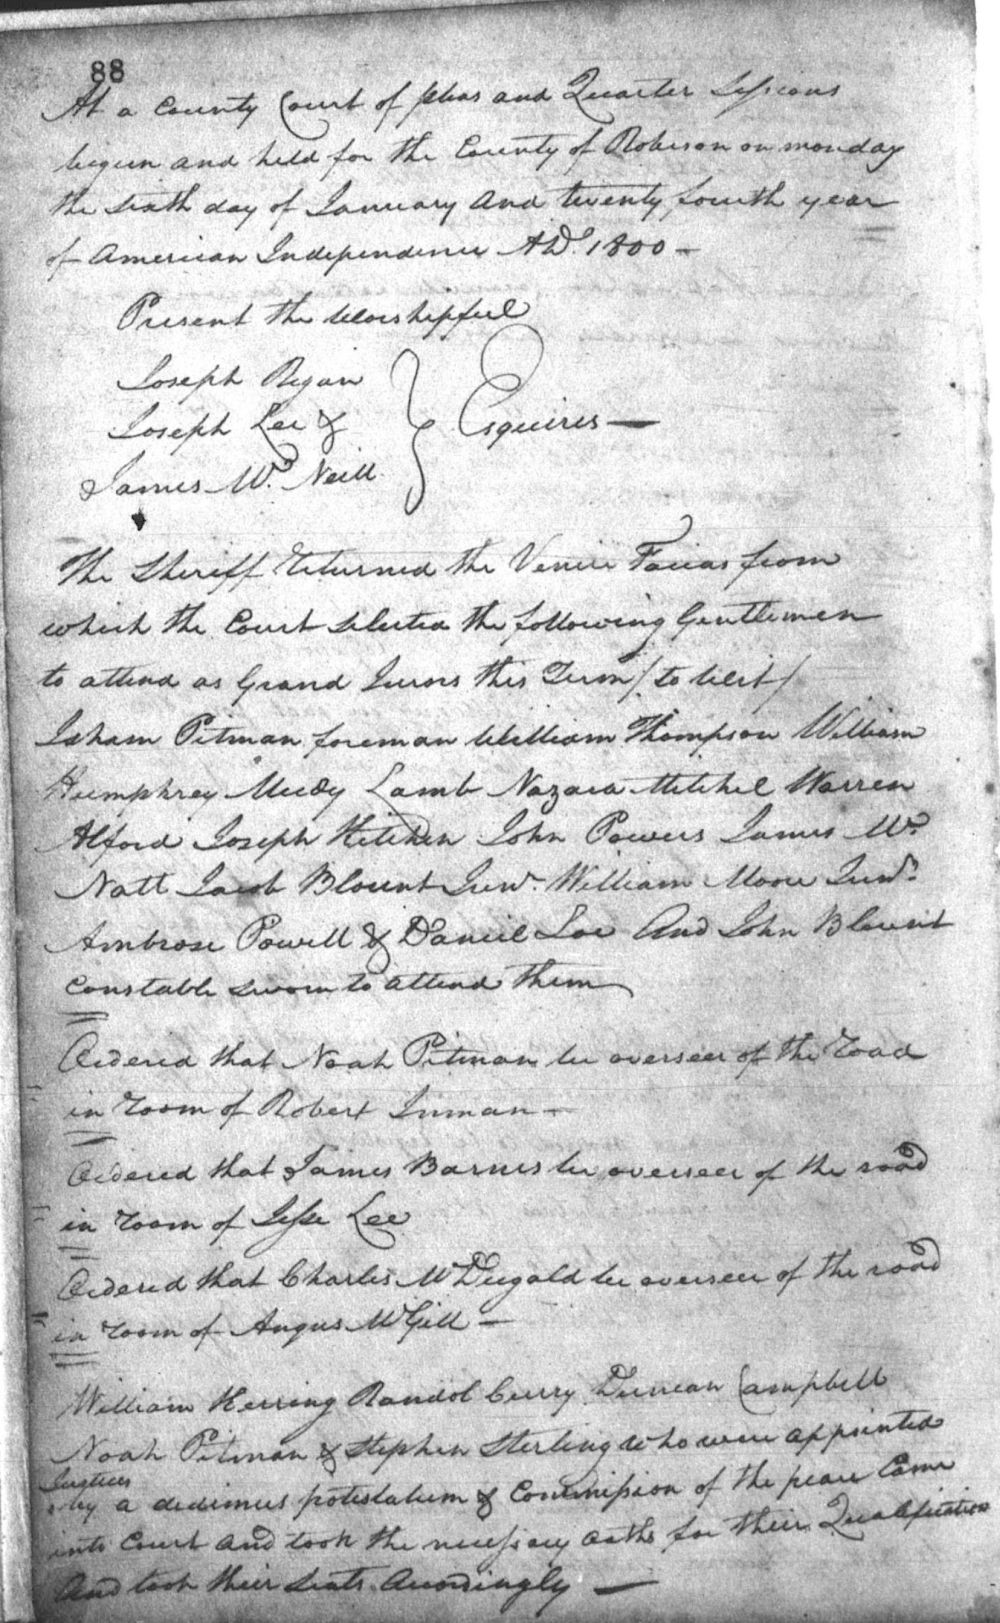 88
At a County Court of pleas and Quarter Sessions
begun and held for the County of Robeson on monday
the sixth day of January And twenty fourth year
of American Independence AD. 1800 -
Present the Worshipful
Joseph Regan
Joseph Lee & } Esquires —
James Mc. Neill
The Sheriff Returned the Venire Facias from
which the Court selected the following Gentlemen
to attend as Grand Jurors this Term / to Wit /
Isham Pitman foreman William Thompson William
Humphrey Meedy Lamb Nazara Mitchel Warren
Alford Joseph Kitchen John Powers James Mc.
Natt Jacob Blount Junr. William Moore Junr.
Ambrose Powell & Daniel Loe And John Blount
Constable sworn to attend them
Ordered that Noah Pitman be overseer of the Road
in room of Robert Inman -
Ordered that James Barnes be overseer of the road
in room of Jesse Lee
Ordered that Charles McDugald be overseer of the road
in room of Angus McGill -
William Herring Randol Curry Duncan Campbell
Noah Pitman & Stephen Sterling who were appointed
Justices
by a dedimus potestatum & Commission of the peace Came
into Court and took the necessary oaths for their Qualification
And took their Seats Accordingly —